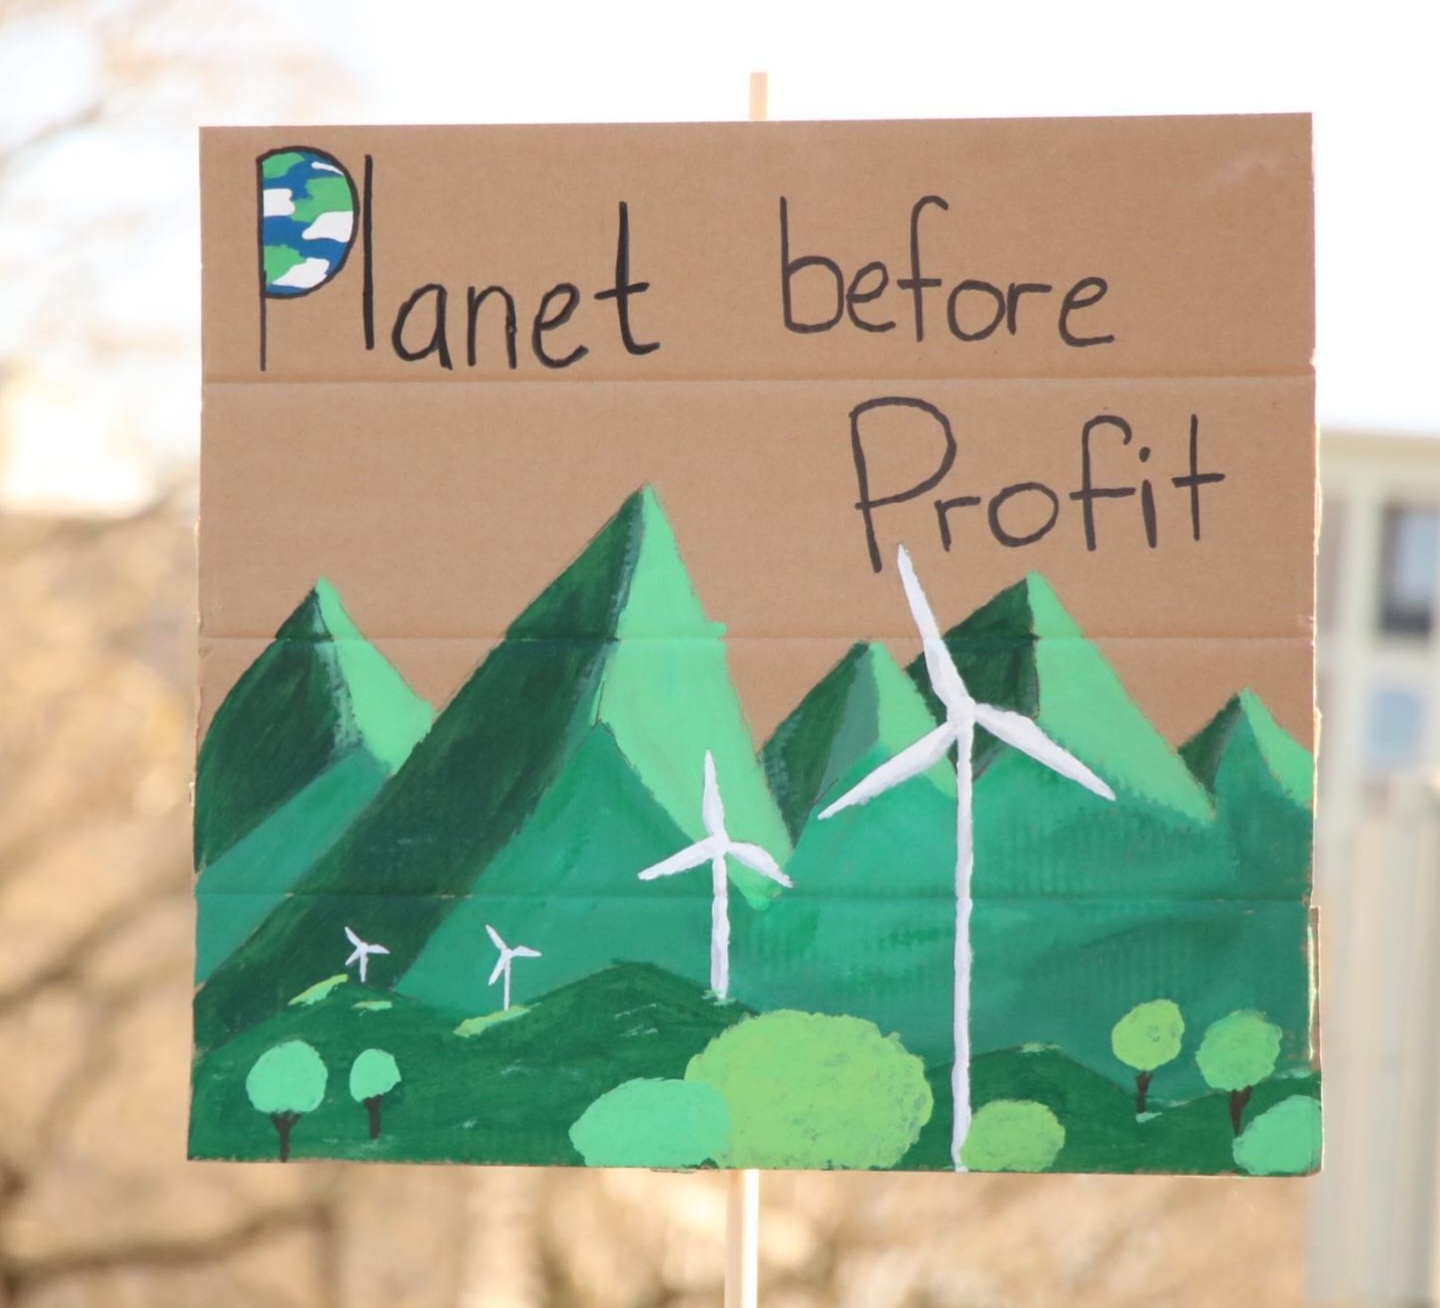 Planet before
Profit